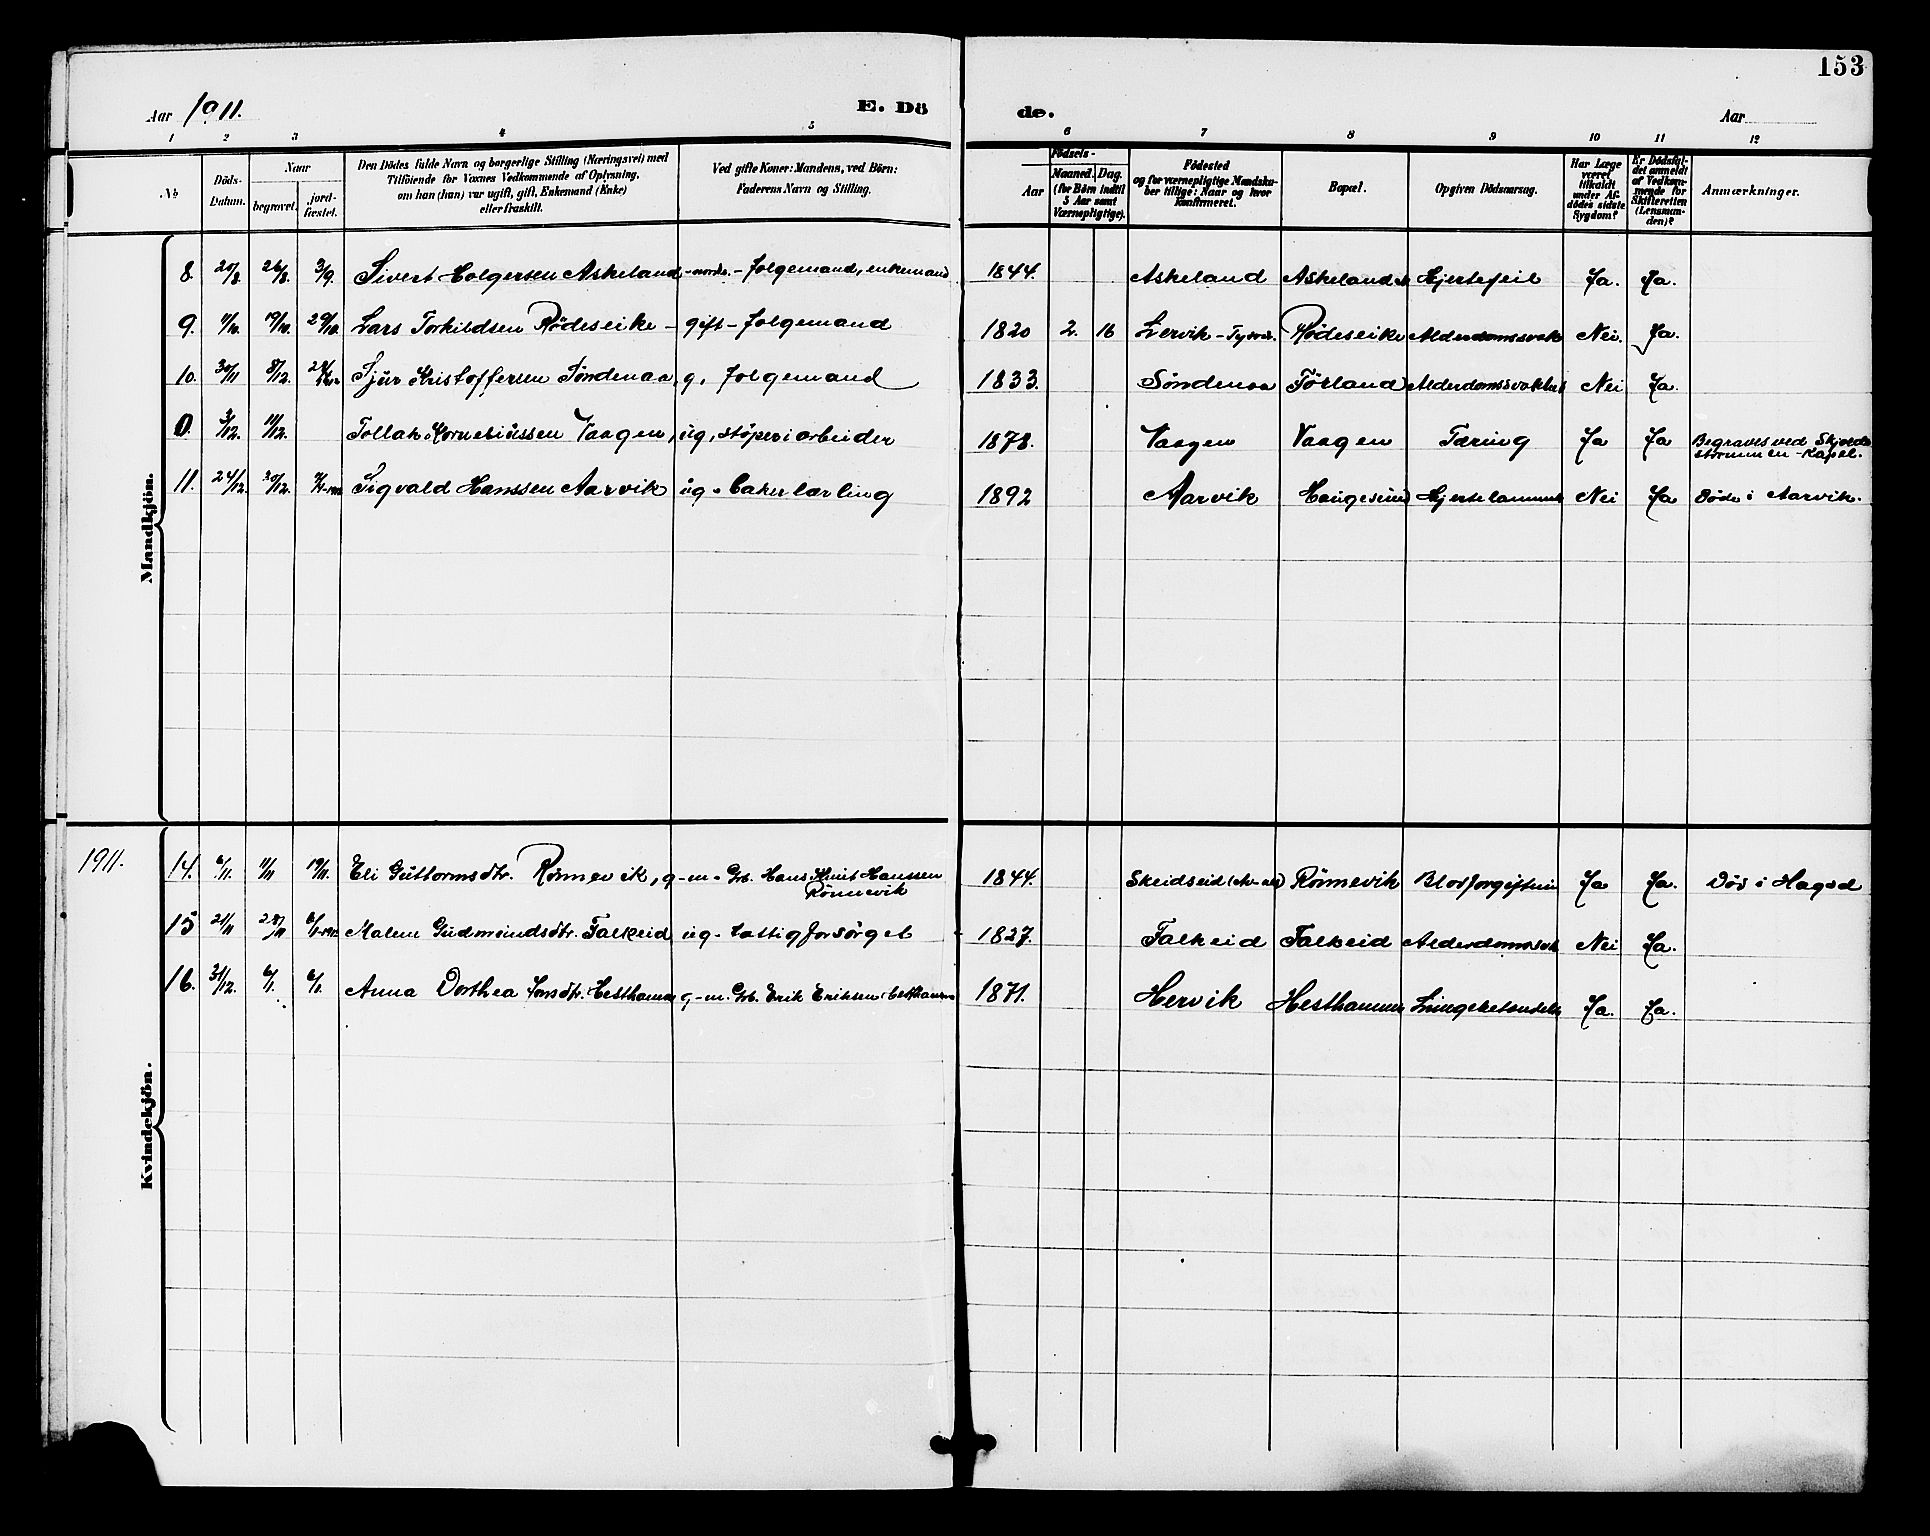 153
Aar 1911.
E. Dö
de.
Aar
1 2 3 4 5 6 7 8 9 10 11 12
No
Döds-
Datum.
Naar
begravet.
jord-
fæstet.
Den Dödes fulde Navn og borgerlige Stilling (Næringsvei) med
Tilföiende for Voxnes Vedkommende af Oplysning,
om han (hun) var ugift, gift, Enkemand (Enke)
eller fraskilt.
Ved gifte Koner: Mandens, ved Börn:
Faderens Navn og Stilling.
Födsels-
Aar
Maaned. Dag.
(for Börn indtil
5 Aar samt
Værnepligtige).
Födested
og for værnepligtige Mandska-
ber tillige: Naar og hvor
konfirmeret.
Bopæl.
Opgiven Dödsaarsag.
Har Læge
været
tilkaldt
under Af-
dödes sidste
Sygdom?
Er Dödsfal-
det anmeldt
af Vedkom-
mende for
Skifteretten
(Lensman-
den)?
Anmærkninger.
Mandkjön.
8. 20/8. 26/8. 3/9. Sivert Holgersen Askeland -nordre- Folgemand, enkemand 1844. Askeland Askeland Hjertefeil Ja. Ja.
9. 11/10. 19/10. 29/10. Lars Torkildsen Rödeseike - gift - Folgemand 1820 2. 16 Lervik - Tysvær. Rödeseike Alderdomssvak Nei. Ja.
10. 30/11 8/12. Sjur Kristoffersen Söndenaa, g, Folgemand 1833. Söndenaa Förland Alderdomssvakhet Nei Ja.
0. 3/12. 11/12. Tollak Korneliussen Vaagen, ug, stöperiarbeider 1878. Vaagen Vaagen Tæring Ja Ja Begraves ved Skjolda-
strömmen - Kapel.
11. 24/12. 30/12. Sigvald Hanssen Aarvik ug. bakerlærling 1892 Aarvik Haugesund Hjertelammelse Nei Ja Döde i Aarvik.
Kvindekjön.
1911. 14. 6/11. 11/11 19/11. Eli Guttormsdtr. Rönnevik, g-m. Grb. Hans Knut Hanssen
Rönnevik 1844. Skeidseid Rönnevik Blodforgiftnin Ja Ja. Död i Hagad
15 21/11 28/11 Malene Gudmundsdtr. Falkeid ug - Fattigforsörget 1827. Falkeid Falkeid Alderdomssvak Nei Ja.
16. 31/12. 6/1. 6/1. Anna Dorthea Jonsdtr. Hesthammer g-m. Grb. Erik Eriksen Hesthammer 1871. Hervik Hesthammer Lungebetændelse Ja. Ja.